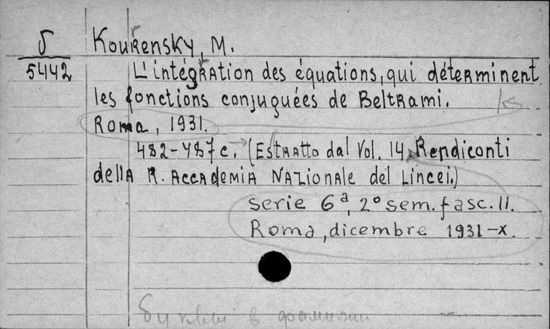 δ
5442
Kourensky, M.
L'intégration des équations, qui déterminent
les fonctions conjuguées de Beltrami.
Roma, 1931.
482-487 c. (Estratto dal Vol. 14, Rendiconti
della R. Accademia Nazionale dei Lincei.)
serie 6ª, 2° sem. fasc. 11.
Roma, dicembre 1931-X.
в